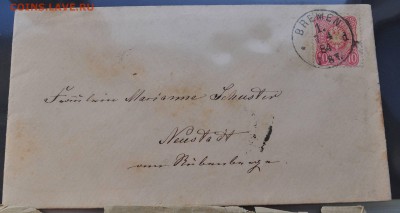 COINS.LAVE.RU
BREMEN
1.
4
84
10
Fräulein Marianne Schuster
Neustadt
am Rübenberge